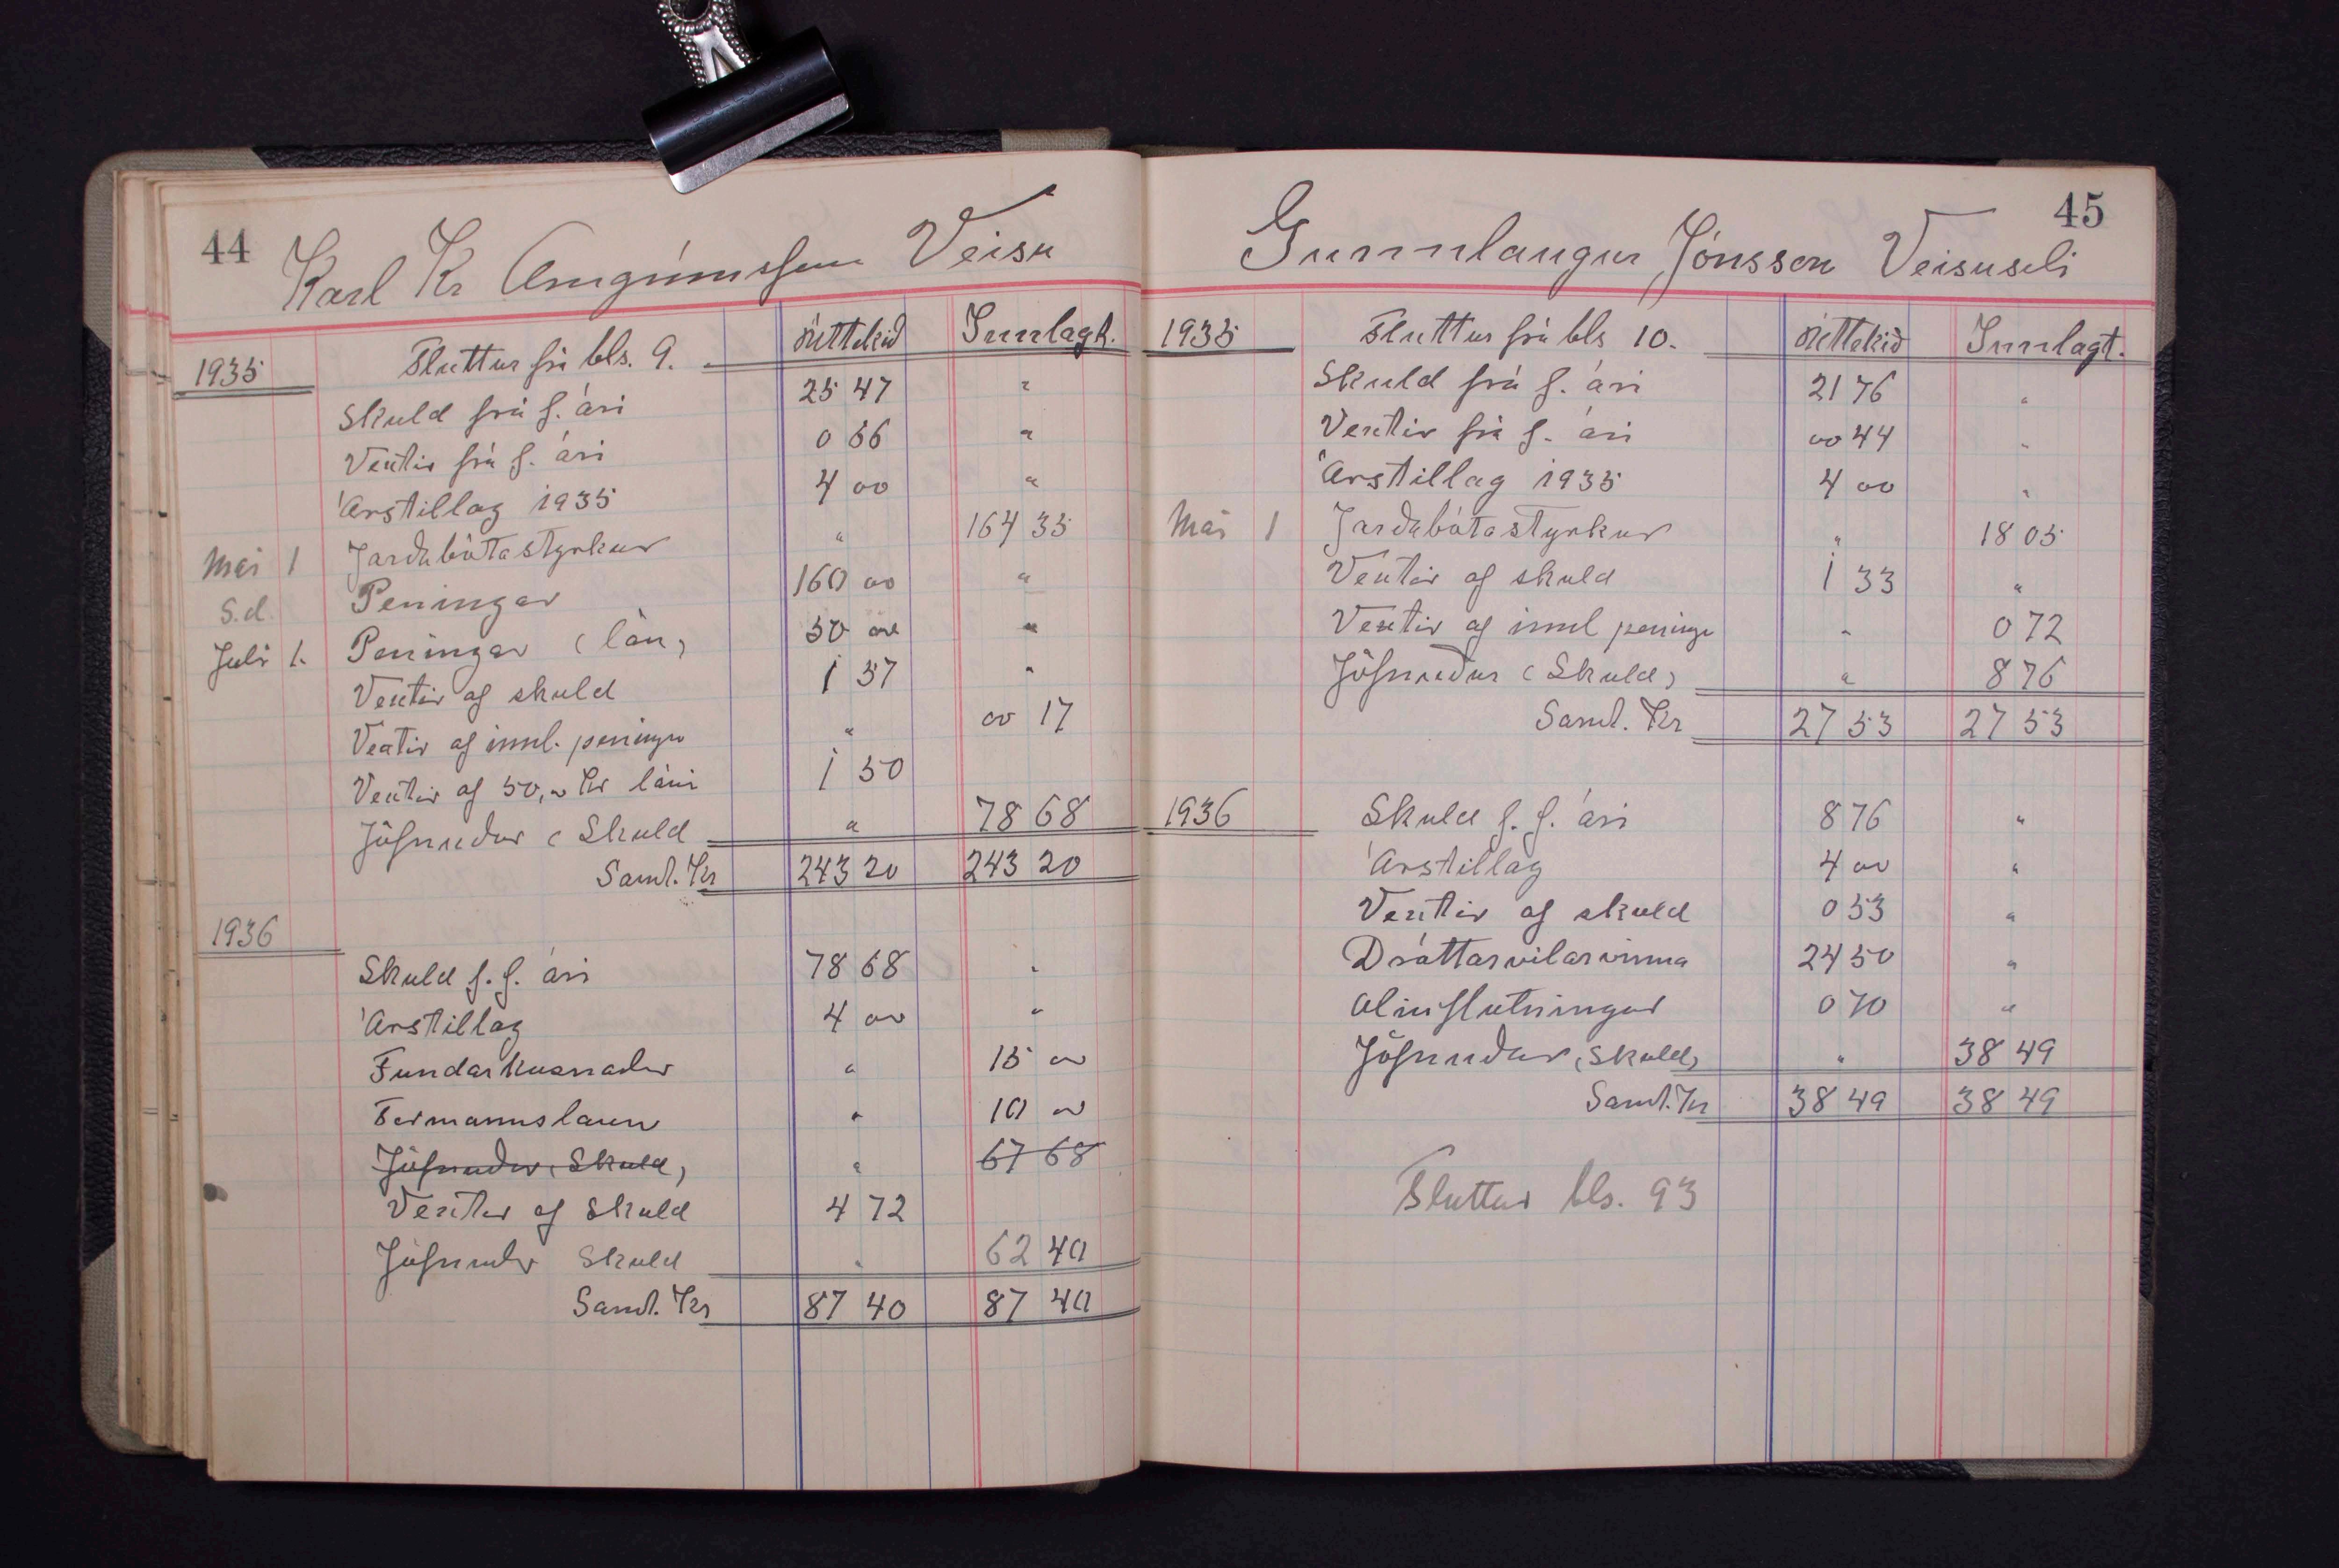 44
Karl Kr Arngrímsson Veisu
1935 Fluttur frá bls. 9. Úttekið Innlagt.
Skuld frá f. ári 25 47 "
Vextir frá f. ári 0 66 "
Árstillag 1935 4 00 "
Maí 1 Jarðabótastyrkur " 164 35
S.d. Peningar 160 00 "
Julí 1. Peningar (lán) 50 00 "
Vextir af skuld 1 57 "
Vextir af innl. peningu " 00 17
Vextir af 50,00 Kr láni 1 50
Jöfnuður (Skuld " 78 68
Samt. Kr 243 20 243 20
1936
Skuld f. f. ári 78 68 "
Árstillag 4 00 "
Fundarkosnaður " 15 00
Fermannslaun " 10 00
Jöfnuður (Skuld) " 67 68
Vextir af Skuld 4 72
Jöfnuður Skuld " 62 40
Samt. Kr 87 40 87 40
45
Gunnlaugur Jónsson Veisuseli
1935 Fluttur frá bls 10. Úttekið Innlagt.
Skuld frá f. ári 21 76 "
Vextir frá f. ári 00 44 "
Árstillag 1935 4 00 "
Maí 1 Jarðabótastyrkur " 18 05
Vextir af skuld 1 33 "
Vextir af innl peninga " 0 72
Jöfnuður (Skuld) " 8 76
Samt. Kr 27 53 27 53
1936 Skuld f. f. ári 8 76 "
Árstillag 4 00 "
Vextir af skuld 0 53 "
Dráttarvilarvinna 24 50 "
Olíuflutningur 0 70 "
Jöfnuður (Skuld) " 38 49
Samt. Kr 38 49 38 49
Fluttur bls. 93